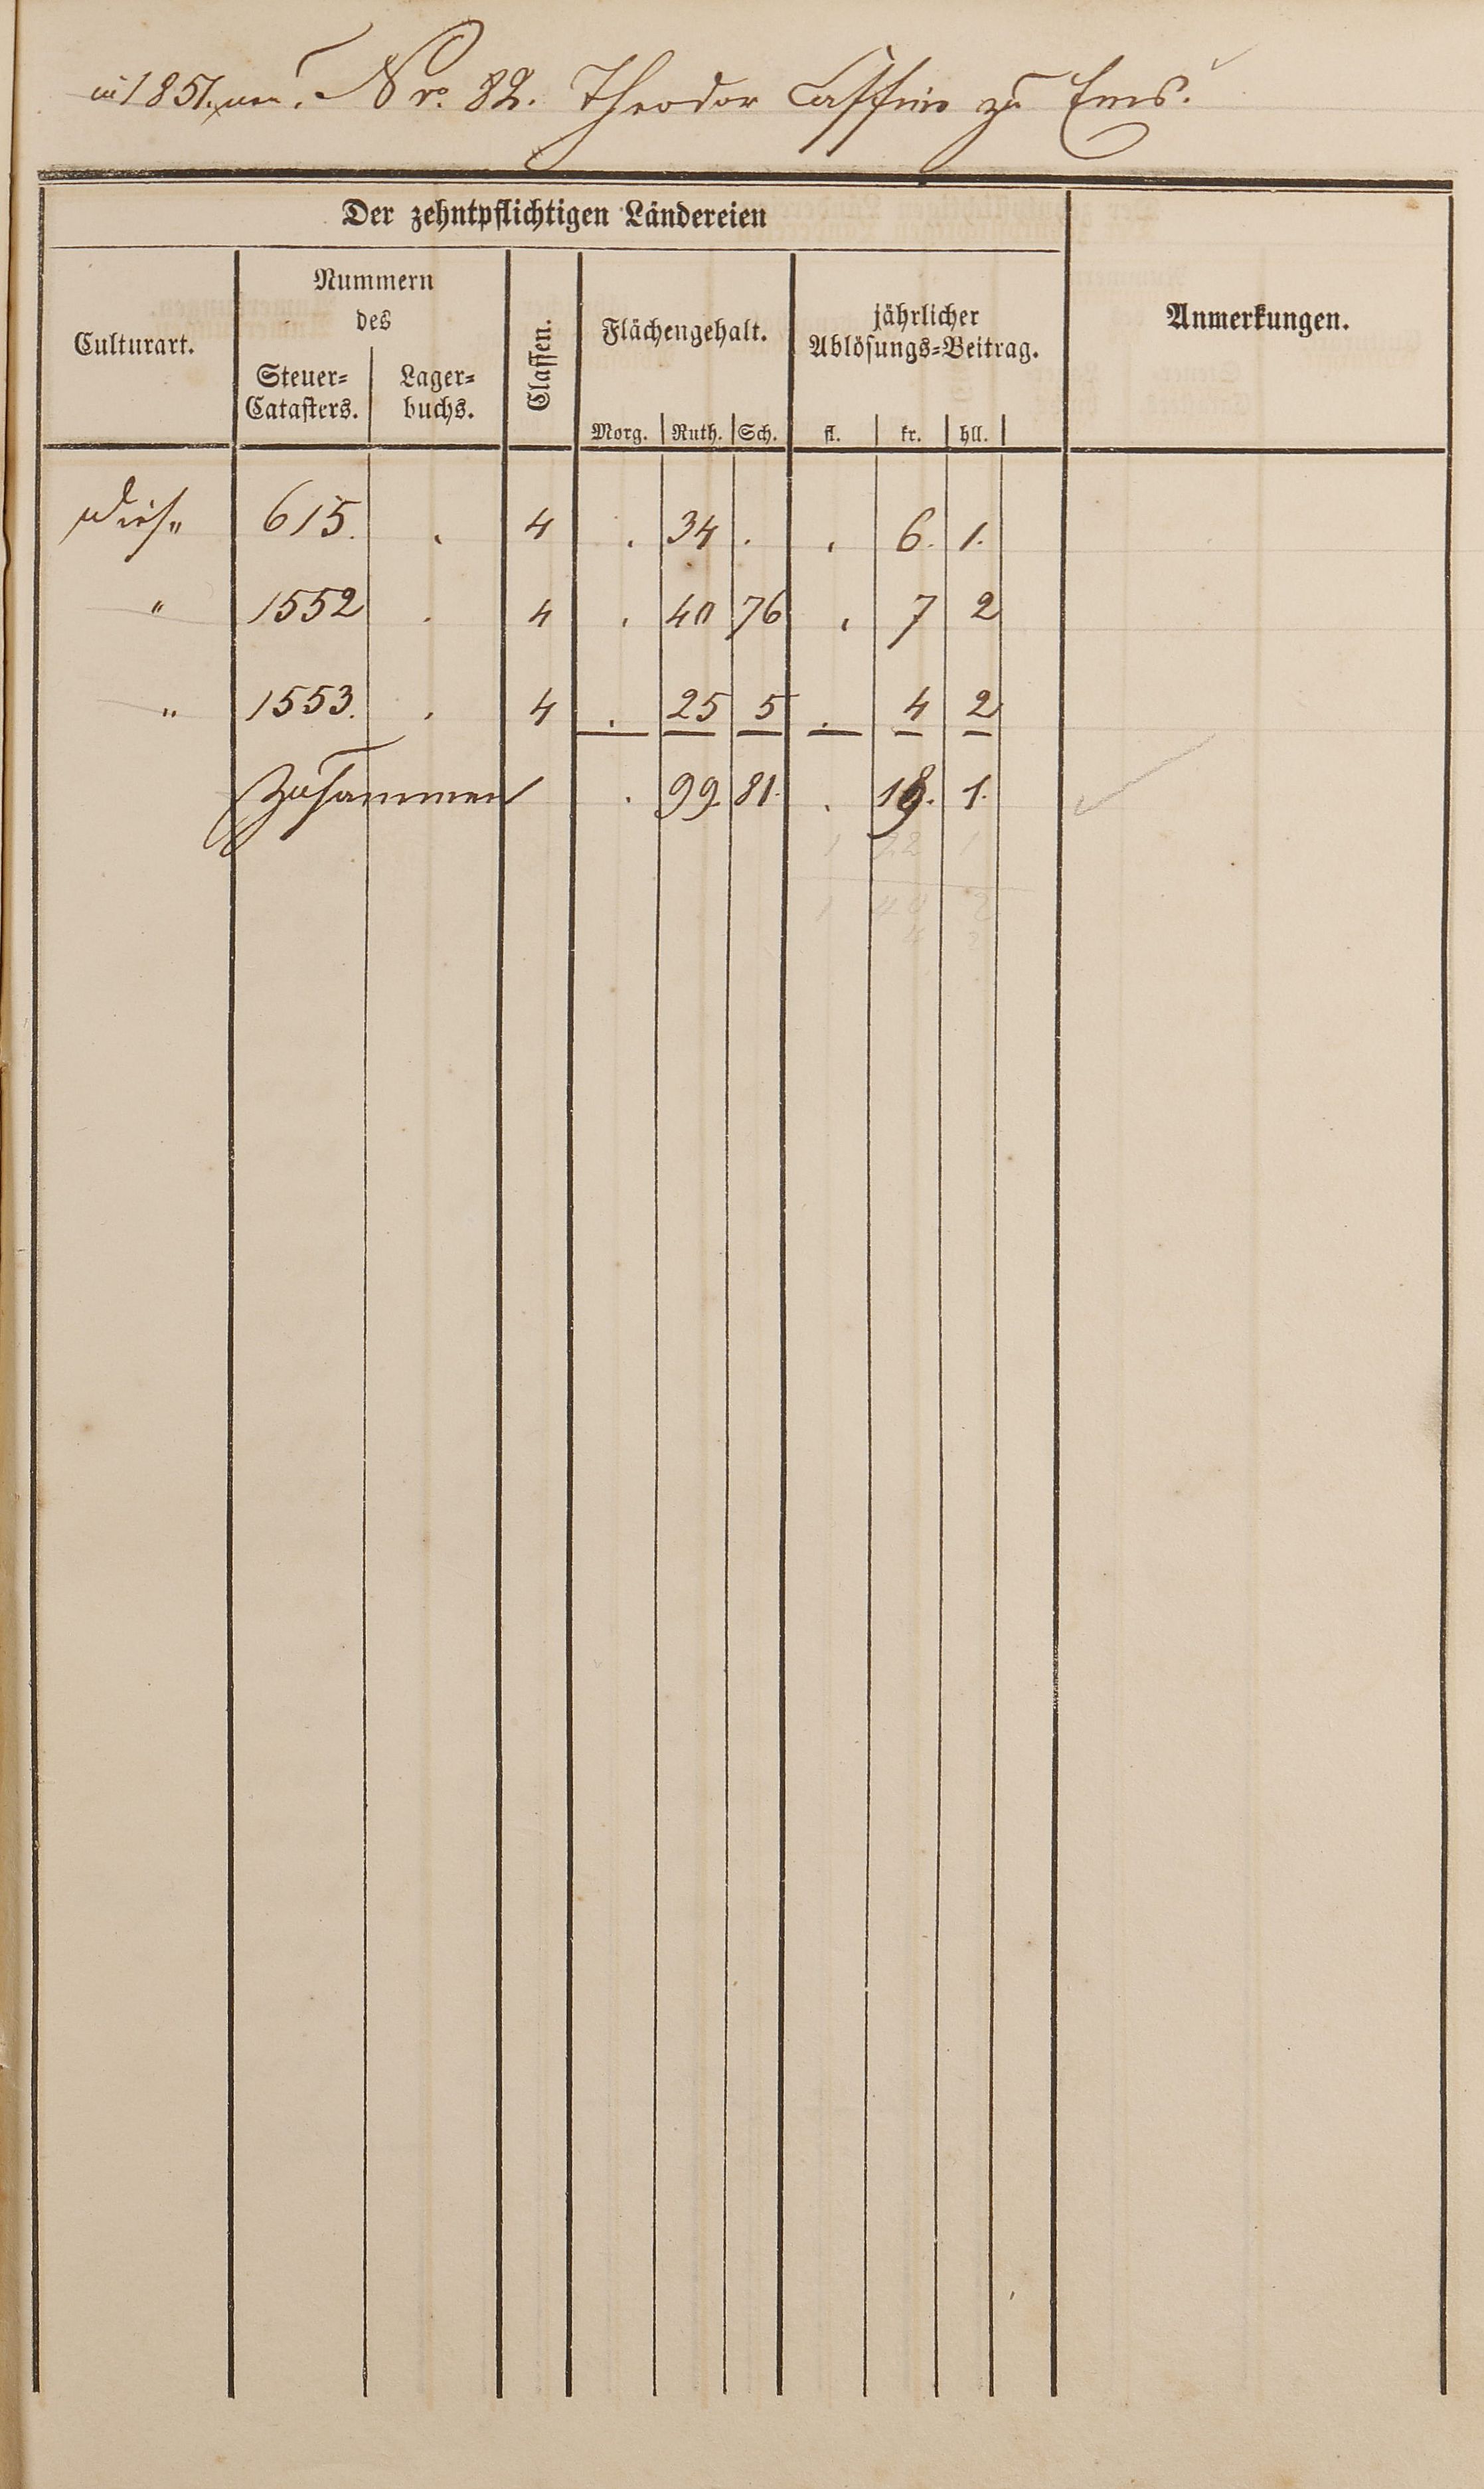 in 1851. neu. Nro. 82. Theodor Cassino zu Ems.
Der zehntpflichtigen Ländereien
Culturart.
Nummern
des
Steuer-
Catasters.
Lager-
buchs.
Classen.
Flächengehalt.
Morg. Ruth. Sch.
jährlicher
Ablösungs-Beitrag.
fl. kr. hll.
Anmerkungen.
Wies" 615. . 4 . 34 . . 6. 1.
" 1552 . 4 . 40 76 . 7 2
" 1553. . 4 . 25 5 . 4 2
Zusammen . 99. 81. . 18. 1.
1 22 1
1 40 2
4 2